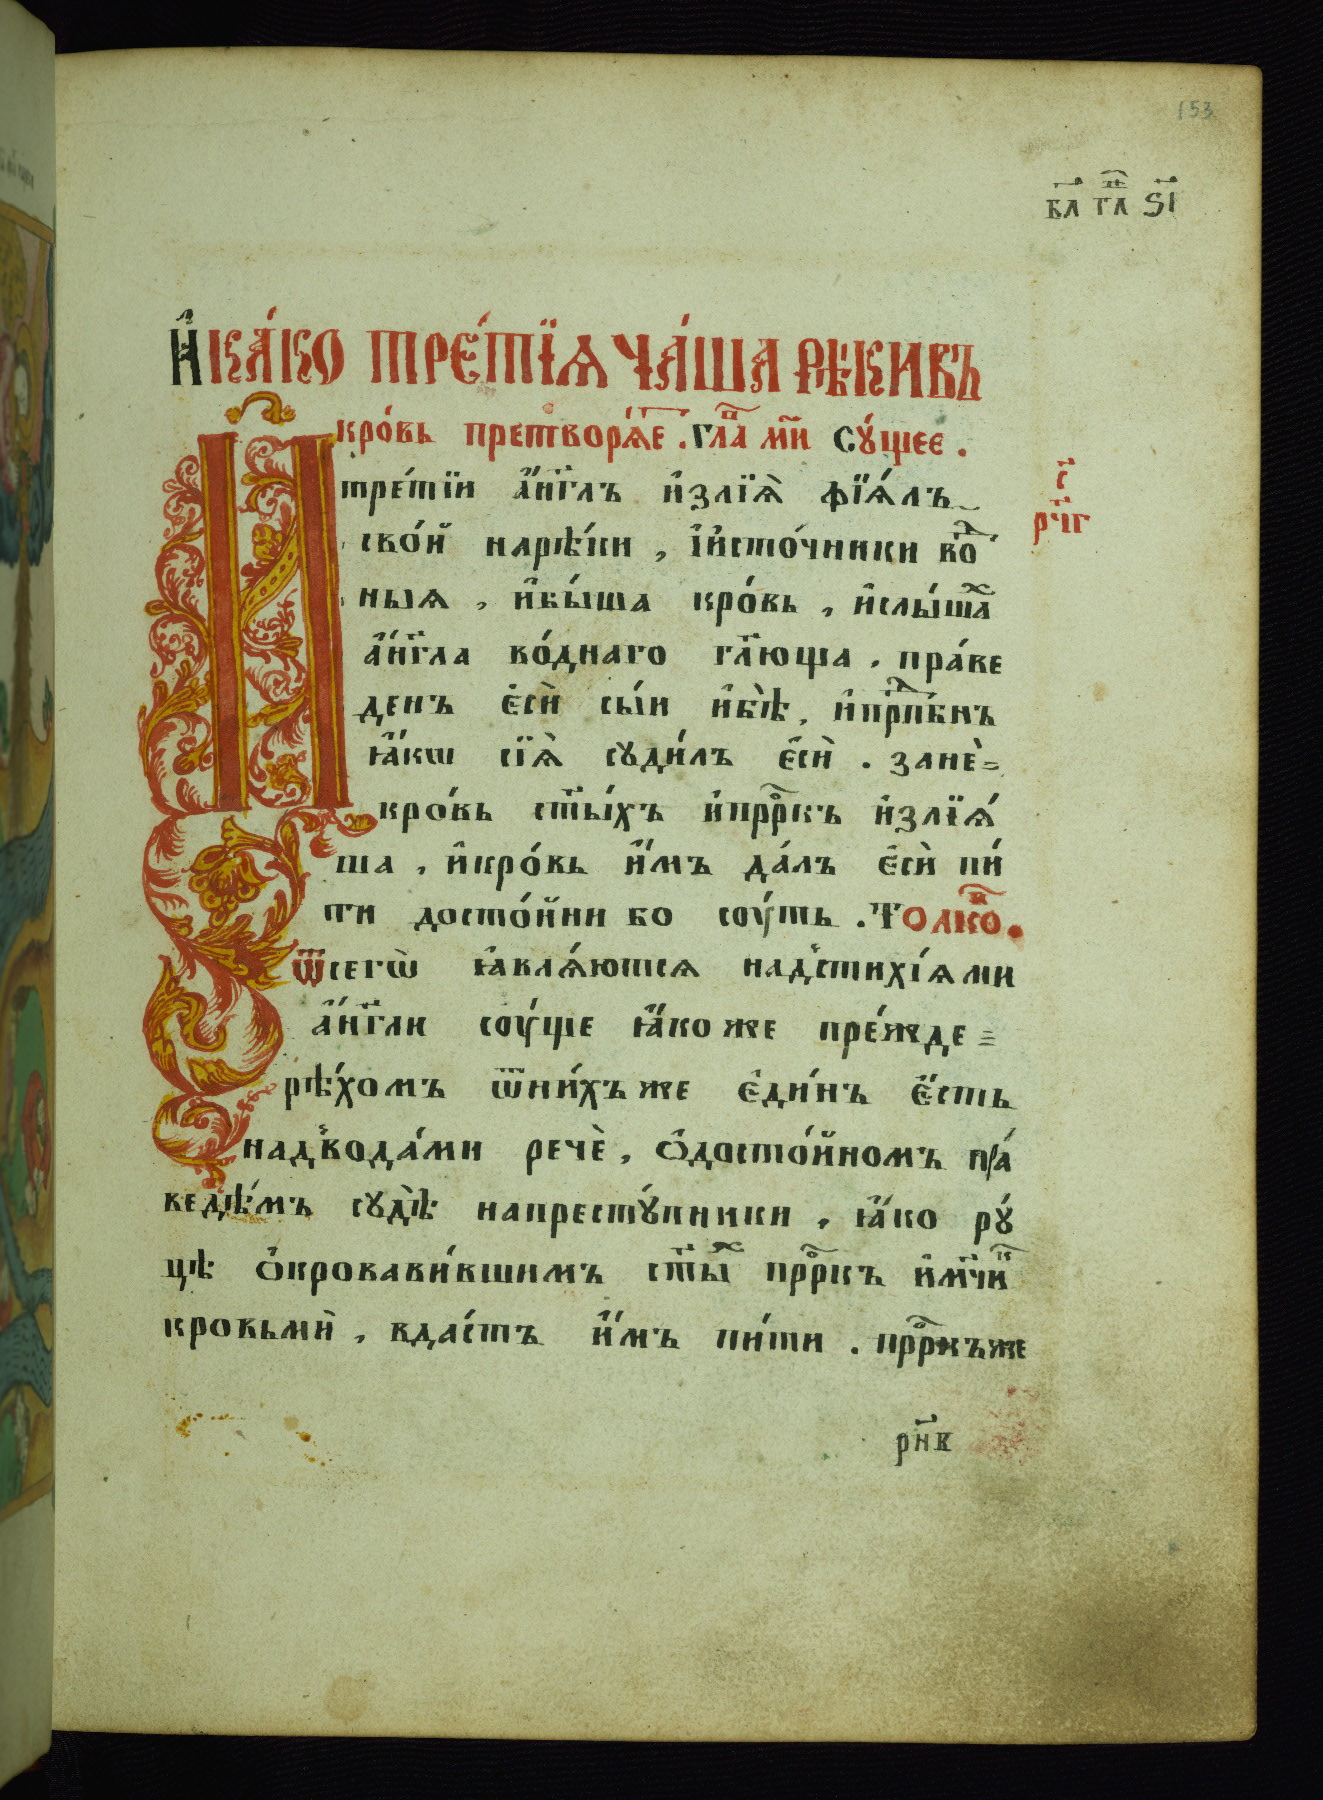 153
в҃л гл҃а ѕ҃і
И҆ка́ко тре́тїѧ ча́ша рѣки въ
кро́вь претворѧ́е. гла́ мн҃и сꙋ́щее.
И тре́тїи а҆́нг҃лъ и҆злїѧ̀ фїѧ́лъ
с҃
рч҃г
сво́й нарѣ́ки, і҆и҆сто́чники во́д
ныѧ, и҆бы́ша кро́вь, и҆слы́шах
а҆́нг҃ла во́днаго гл҃юща, пра́ве
денъ є҆сѝ сы́и и҆бѣ̀, и҆прⷣпⷣбнъ
ꙗ҆́кѡ сїѧ̀ сꙋди́лъ є҆сѝ. занѐ
кро́вь ст҃ы́хъ и҆прⷪ҇ркъ и҆злїѧ́
ша, и҆кро́вь и҆́мъ да́лъ є҆сѝ пи́
ти досто́йни бо сꙋ́ть. Толко́в.
ѿсегѡ̀ ꙗ҆влѧ́ютсѧ надстихі́ѧми
а҆́нг҃ли сꙋ́ще ꙗ҆́коже пре́жде
рѣ́хомъ ѿни́хъже є҆ди́нъ є҆́сть
надвода́ми речѐ, ѡ҆досто́йномъ пра́
ведѣ́мъ сꙋдѣ̀ напрестꙋ́пники, ꙗ҆́ко рꙋ́
цѣ ѡ҆крокави́вшимъ ст҃ы́х прⷪ҇ркъ и҆мч҃ик
кровьмѝ, вда́стъ и҆́мъ пи́ти. прⷪ҇ркъже
рн҃в